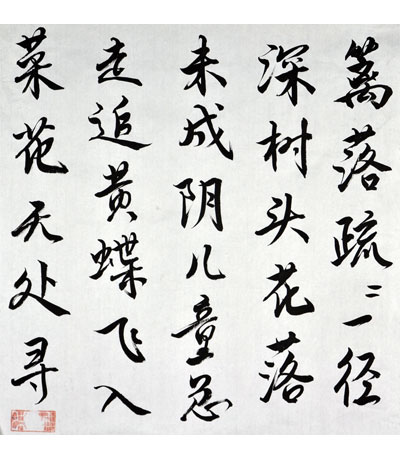 篱落疏〻一径
深树头花落
未成阴儿童急
走追黄蝶飞入
菜花无处寻